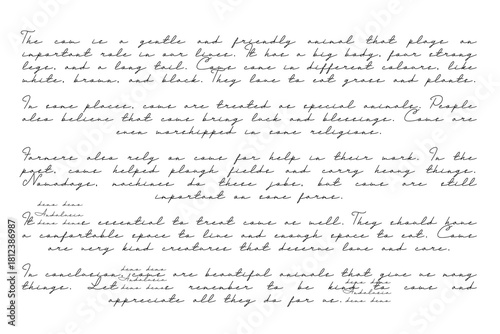 The cow is a gentle and friendly animal that plays an
important role in our lives. It has a big body, four strong
legs, and a long tail. Cows come in different colours, like
white, brown, and black. They love to eat grass and plants.
In some places, cows are treated as special animals. People
also believe that cows bring luck and blessings. Cows are
even worshipped in some religions.
Farmers also rely on cows for help in their work. In the
past, cows helped plough fields and carry heavy things.
Nowadays, machines do these jobs, but cows are still
important on some farms.
It essential to treat cows well. They should have
a comfortable space to live and enough space to eat. Cows
are very kind creatures that deserve love and care.
In conclusion, cows are beautiful animals that give us many
things. Let remember to be kind to cows and
appreciate all they do for us.